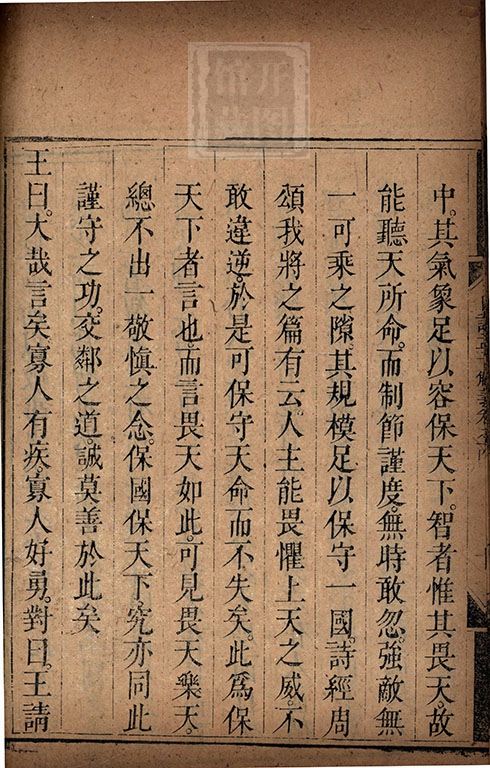 中。其氣象足以容保天下。智者惟其畏天。故
能聽天所命。而制節謹度。無時敢忽。強敵無
一可乘之隙。其規模足以保守一國。詩經周
頌我將之篇有云。人主能畏懼上天之威。不
敢違逆。於是可保守天命而不失矣。此爲保
天下者言也。而言畏天如此。可見畏天樂天。
總不出一敬慎之念。保國保天下究亦同此
謹守之功。交鄰之道。誠莫善於此矣
王曰。大哉言矣。寡人有疾。寡人好勇。對曰。王請
開图
馆藏